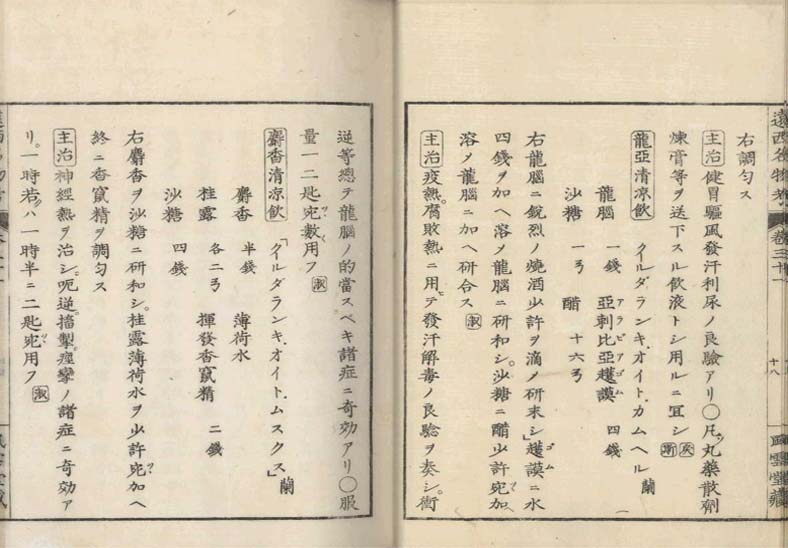 右調勻ス
主治健胃驅風發汗利尿ノ良驗アリ〇凡ソ丸藥散劑
煉膏等ヲ送下スル飲液トシ用ルニ宜シ
龍亞清凉飲 クイルダランキ、オイト、カムヘル 蘭
龍腦 一錢 亞刺比亞護謨 四錢
アラビアゴム
沙糖 一ヲ 醋 十六ヲ
右龍腦ニ銳烈ノ燒酒少許ヲ滴ノ研末シ護謨ニ水
ゴム
四錢ヲ加ヘ溶ノ龍腦ニ研和シ沙糖ニ醋少許宛加
溶ノ龍腦ニ加ヘ研合ス 淑
主治疫熱腐敗熱ニ用テ發汗解毒ノ良驗ヲ奏シ衝
逆等總テ龍腦ノ的當スベキ諸症ニ奇効アリ〇服
量一二匙宛數用フ 淑
麝香清凉飲 「クイルダランキ、オイト、ムスクス」 蘭
麝香 半錢 薄荷水
桂露 各二ヲ 揮發香竄精 二錢
沙糖 四錢
右麝香ヲ沙糖ニ研和シ桂露薄荷水ヲ少許宛加ヘ
終ニ香竄精ヲ調勻ス
主治神經熱ヲ治シ呃逆搐掣痙攣ノ諸症ニ奇効ア
リ一時若クハ一時半ニ二匙宛用フ 淑
卷三十一
十八
風雲堂藏